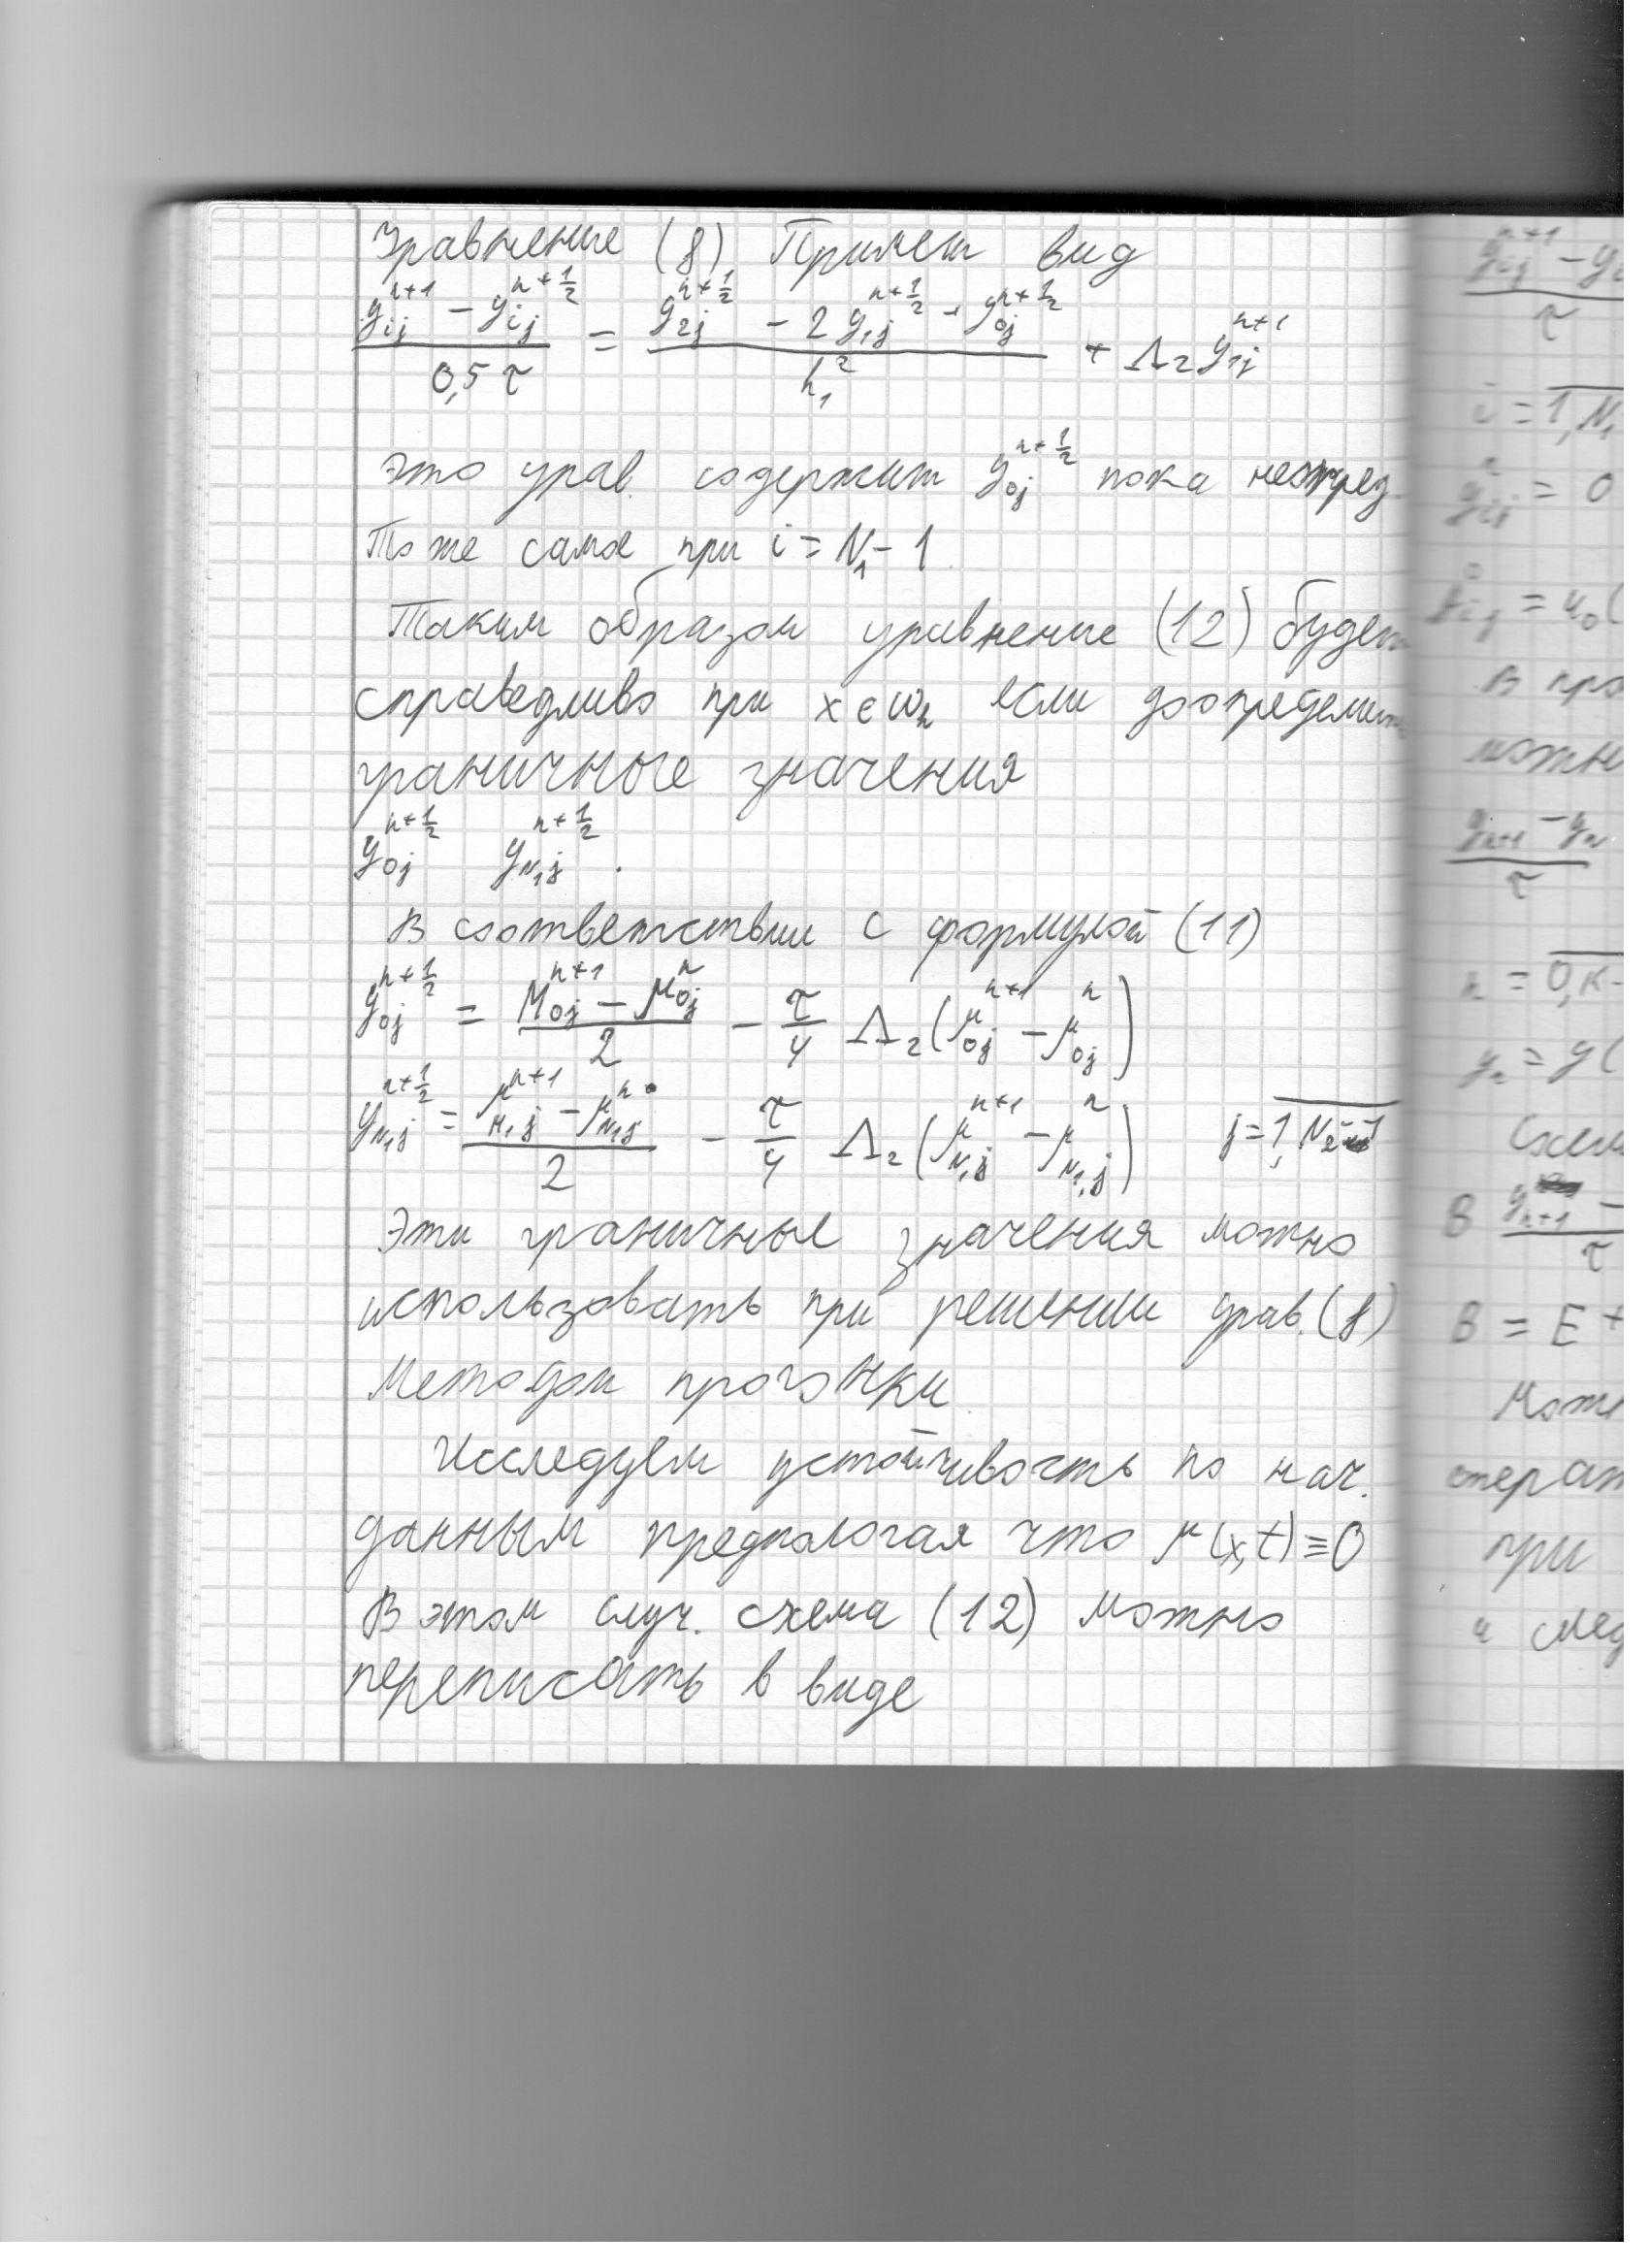 Уравнение (8) Примет вид
(y_{ij}^{n+1} - y_{ij}^{n+1/2}) / 0,5τ = (y_{2j}^{n+1/2} - 2y_{1j}^{n+1/2} + y_{0j}^{n+1/2}) / h_1^2 + Λ_2 y_{1j}^{n+1}
это урав. содержит y_{0j}^{n+1/2} пока неопред.
То же самое при i = N_1 - 1
Таким образом уравнение (12) будет
справедливо при x ∈ ω_h если доопределить
граничные значения
y_{0j}^{n+1/2} y_{N_1j}^{n+1/2} .
В соответствии с формулой (11)
y_{0j}^{n+1/2} = (μ_{0j}^{n+1} - μ_{0j}^{n}) / 2 - τ/4 Λ_2 (μ_{0j}^{n+1} - μ_{0j}^{n})
y_{N_1j}^{n+1/2} = (μ_{N_1j}^{n+1} - μ_{N_1j}^{n}) / 2 - τ/4 Λ_2 (μ_{N_1j}^{n+1} - μ_{N_1j}^{n}) j = 1, N_2-1
Эти граничные значения можно
использовать при решении урав. (8)
Методом прогонки
Исследуем устойчивость по нач.
данным предпологая что μ(x,t) ≡ 0
В этом случ. схема (12) можно
переписать в виде
y_{ij}^{n+1} - y
τ
i = 1, N_1
= 0
= u_0(
В про
можн
y_{n+1} - y_n
τ
n = 0, K-
y_n = y(
Схем
B y_{n+1} -
τ
B = E +
Можн
операт
при
и след